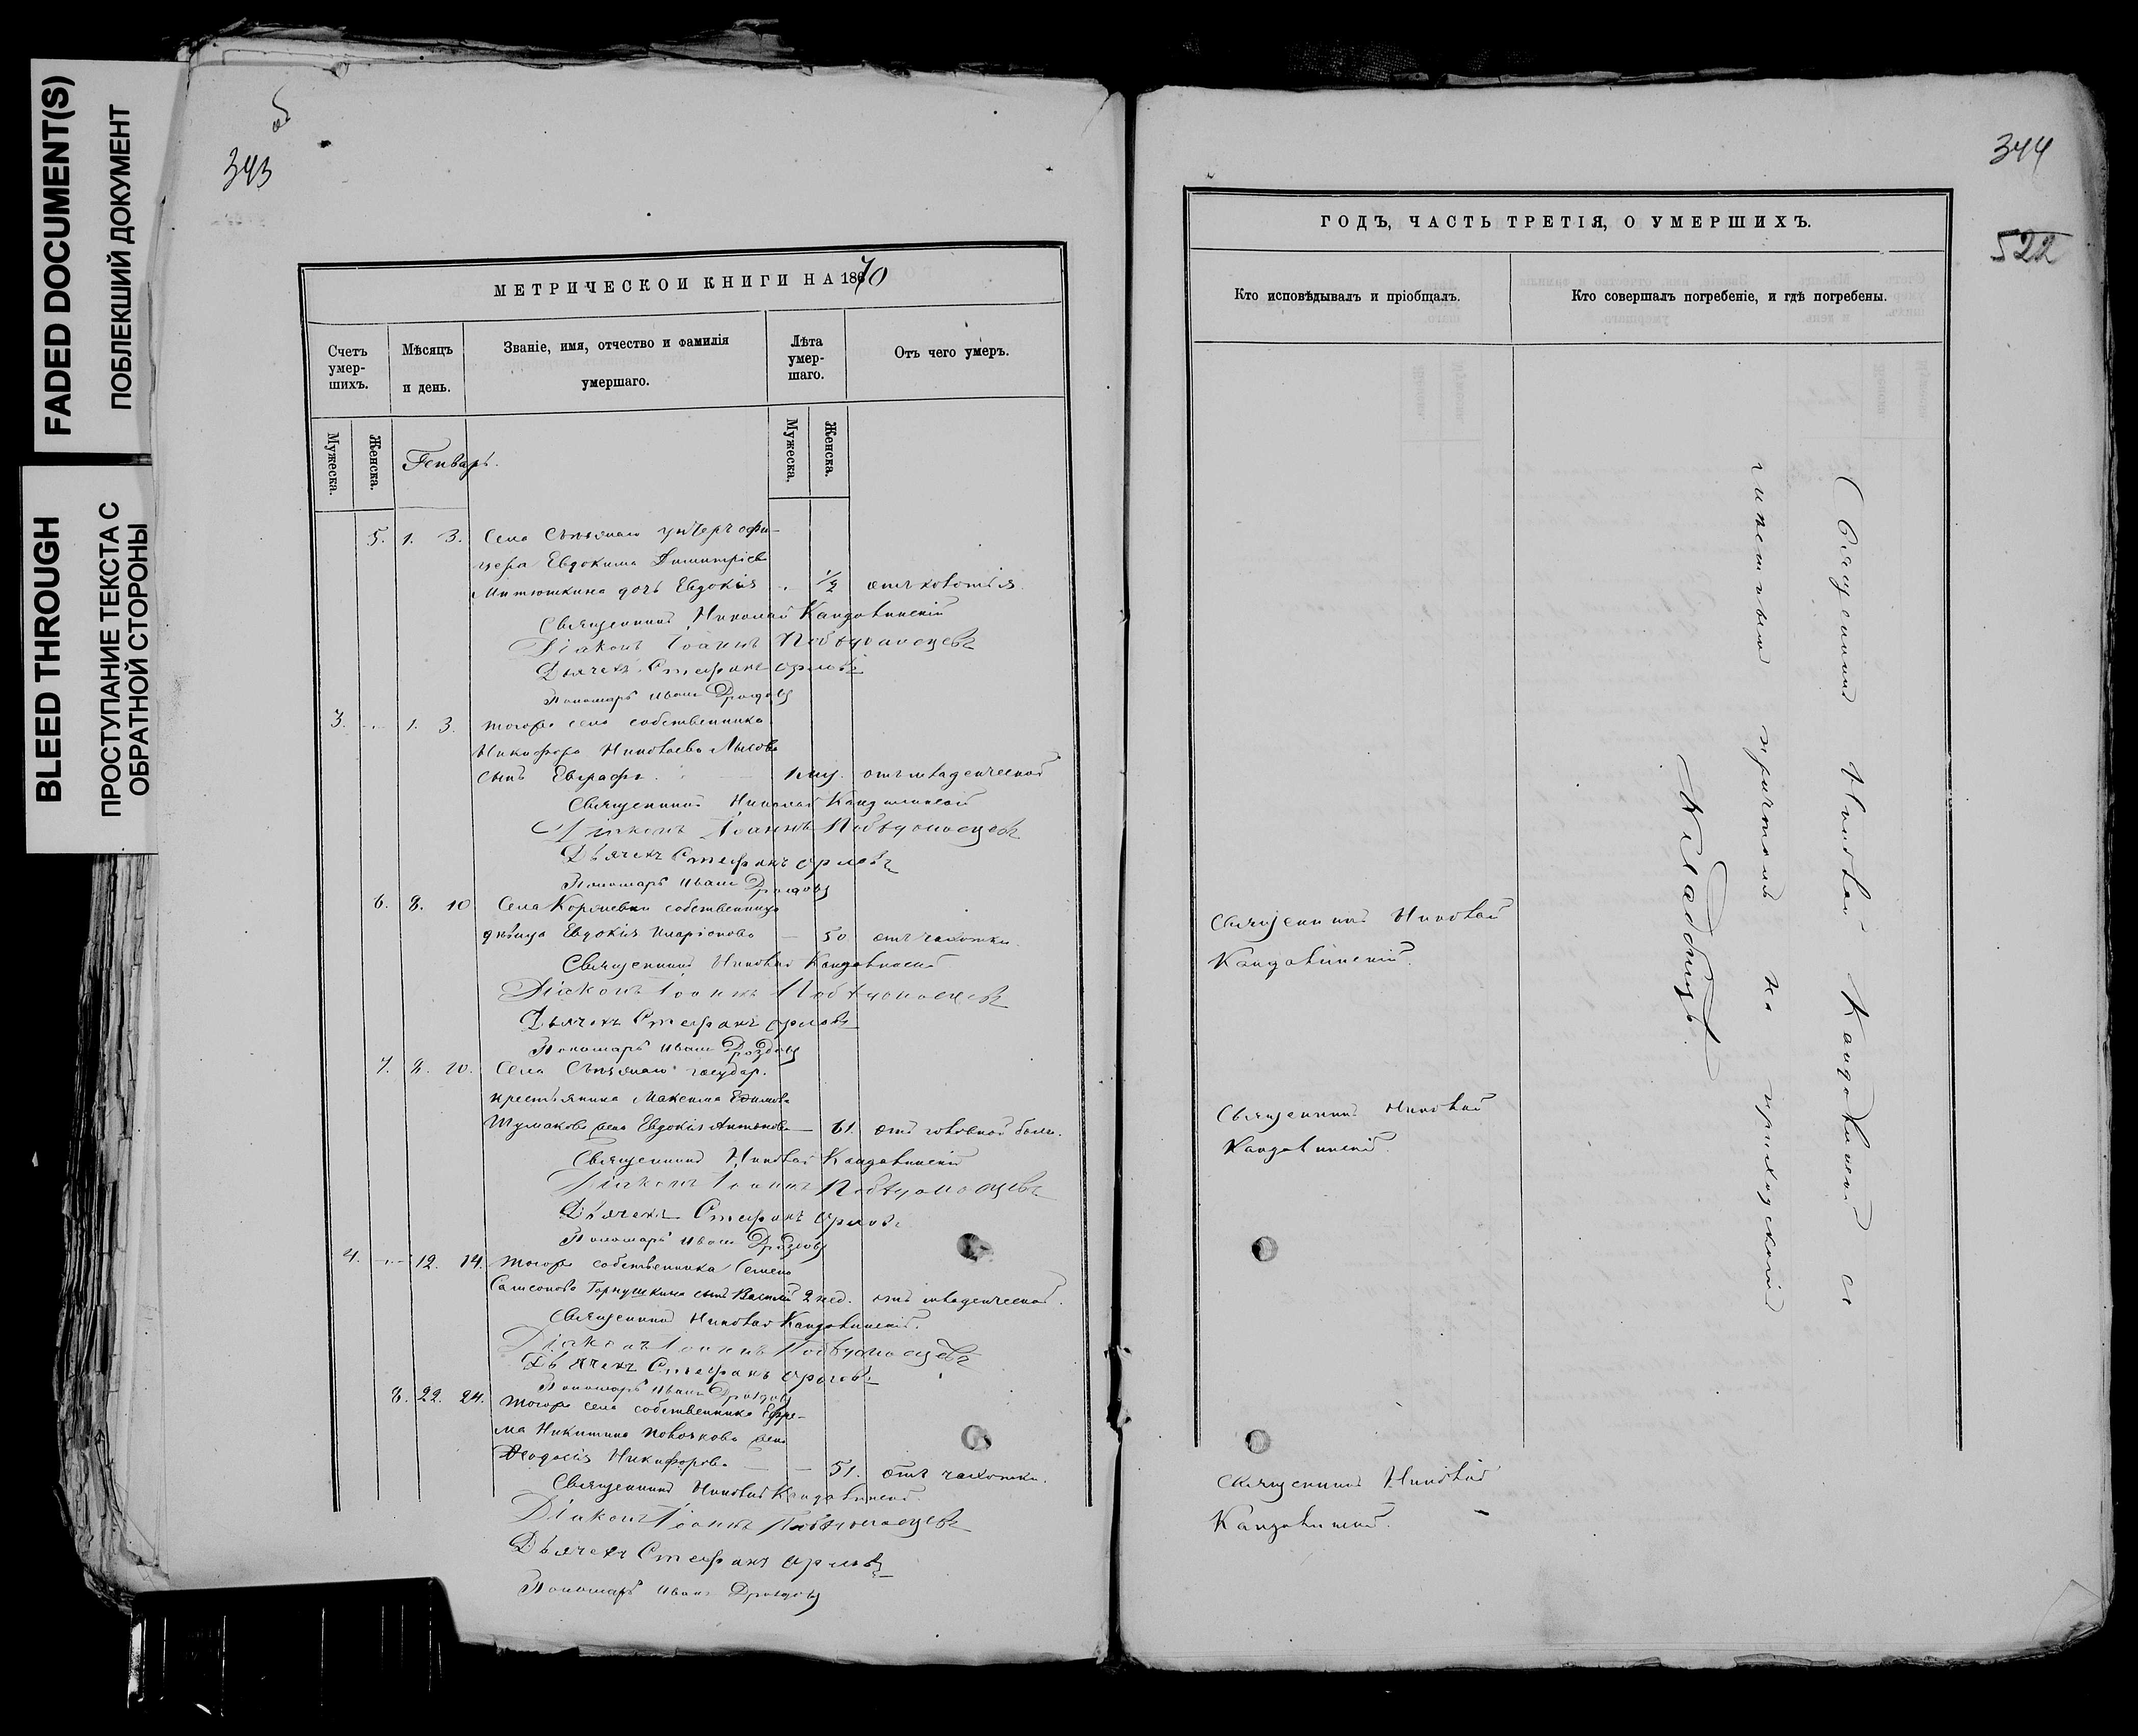 FADED DOCUMENT(S)
ПОБЛЕКШИЙ ДОКУМЕНТ
BLEED THROUGH
ПРОСТУПАНИЕ ТЕКСТА С
ОБРАТНОЙ СТОРОНЫ
об
343
МЕТРИЧЕСКОЙ КНИГИ НА 1870
Счетъ умер-шихъ.
Мѣсяцъ и день.
Званіе, имя, отчество и фамилія умершаго.
Лѣта умер-шаго.
Отъ чего умеръ.
Мужеска.
Женска.
Генварь.
Мужеска.
Женска.
5. 1. 3. Села унтеръ офи-
цера Евдокима Димитріева
Митюшкина дочь Евдокія ½ отъ
Священникъ Николай Кандовинскій
Діаконъ Іоаннъ Побѣдоносцевъ
Дьячекъ Стефанъ Орловъ
Пономарь Иванъ Дроздовъ
3. 1. 3. Тогоже села собственника
Никифора Николаева
сынъ Евграфъ. отъ младенческой
Священникъ Николай Кандовинскій
Діаконъ Іоаннъ Побѣдоносцевъ
Дьячекъ Стефанъ Орловъ
Пономарь Иванъ Дроздовъ
6. 8. 10 Села собственница
дѣвица Евдокія Иларіонова 50 отъ чахотки.
Священникъ Николай Кандовинскій
Діаконъ Іоаннъ Побѣдоносцевъ
Дьячекъ Стефанъ Орловъ
Пономарь Иванъ Дроздовъ
7. 8. 10. Села государ.
крестьянина Максима
жена Евдокія Антонова 61. отъ головной боли.
Священникъ Николай Кандовинскій
Діаконъ Іоаннъ Побѣдоносцевъ
Дьячекъ Стефанъ Орловъ
Пономарь Иванъ Дроздовъ
4. 12. 14. Тогоже собственника Семена
Самсонова сынъ Василій 2 нед. отъ младенческой.
Священникъ Николай Кандовинскій.
Діаконъ Іоаннъ Побѣдоносцевъ
Дьячекъ Стефанъ Орловъ
Пономарь Иванъ Дроздовъ
8. 22. 24. Тогоже села собственника Ефре-
ма Никитина жена
Ѳеодосія Никифорова 51. отъ чахотки.
Священникъ Николай Кандовинскій.
Діаконъ Іоаннъ Побѣдоносцевъ
Дьячекъ Стефанъ Орловъ
Пономарь Иванъ Дроздовъ
344
522
ГОДЪ, ЧАСТЬ ТРЕТІЯ, О УМЕРШИХЪ.
Кто исповѣдывалъ и пріобщалъ.
Кто совершалъ погребеніе, и гдѣ погребены.
Священникъ Николай
Кандовинскій.
Священникъ Николай
Кандовинскій.
Священникъ Николай
Кандовинскій.
Священникъ Николай Кандовинскій съ
причтомъ на приходскомъ
Кладбищѣ